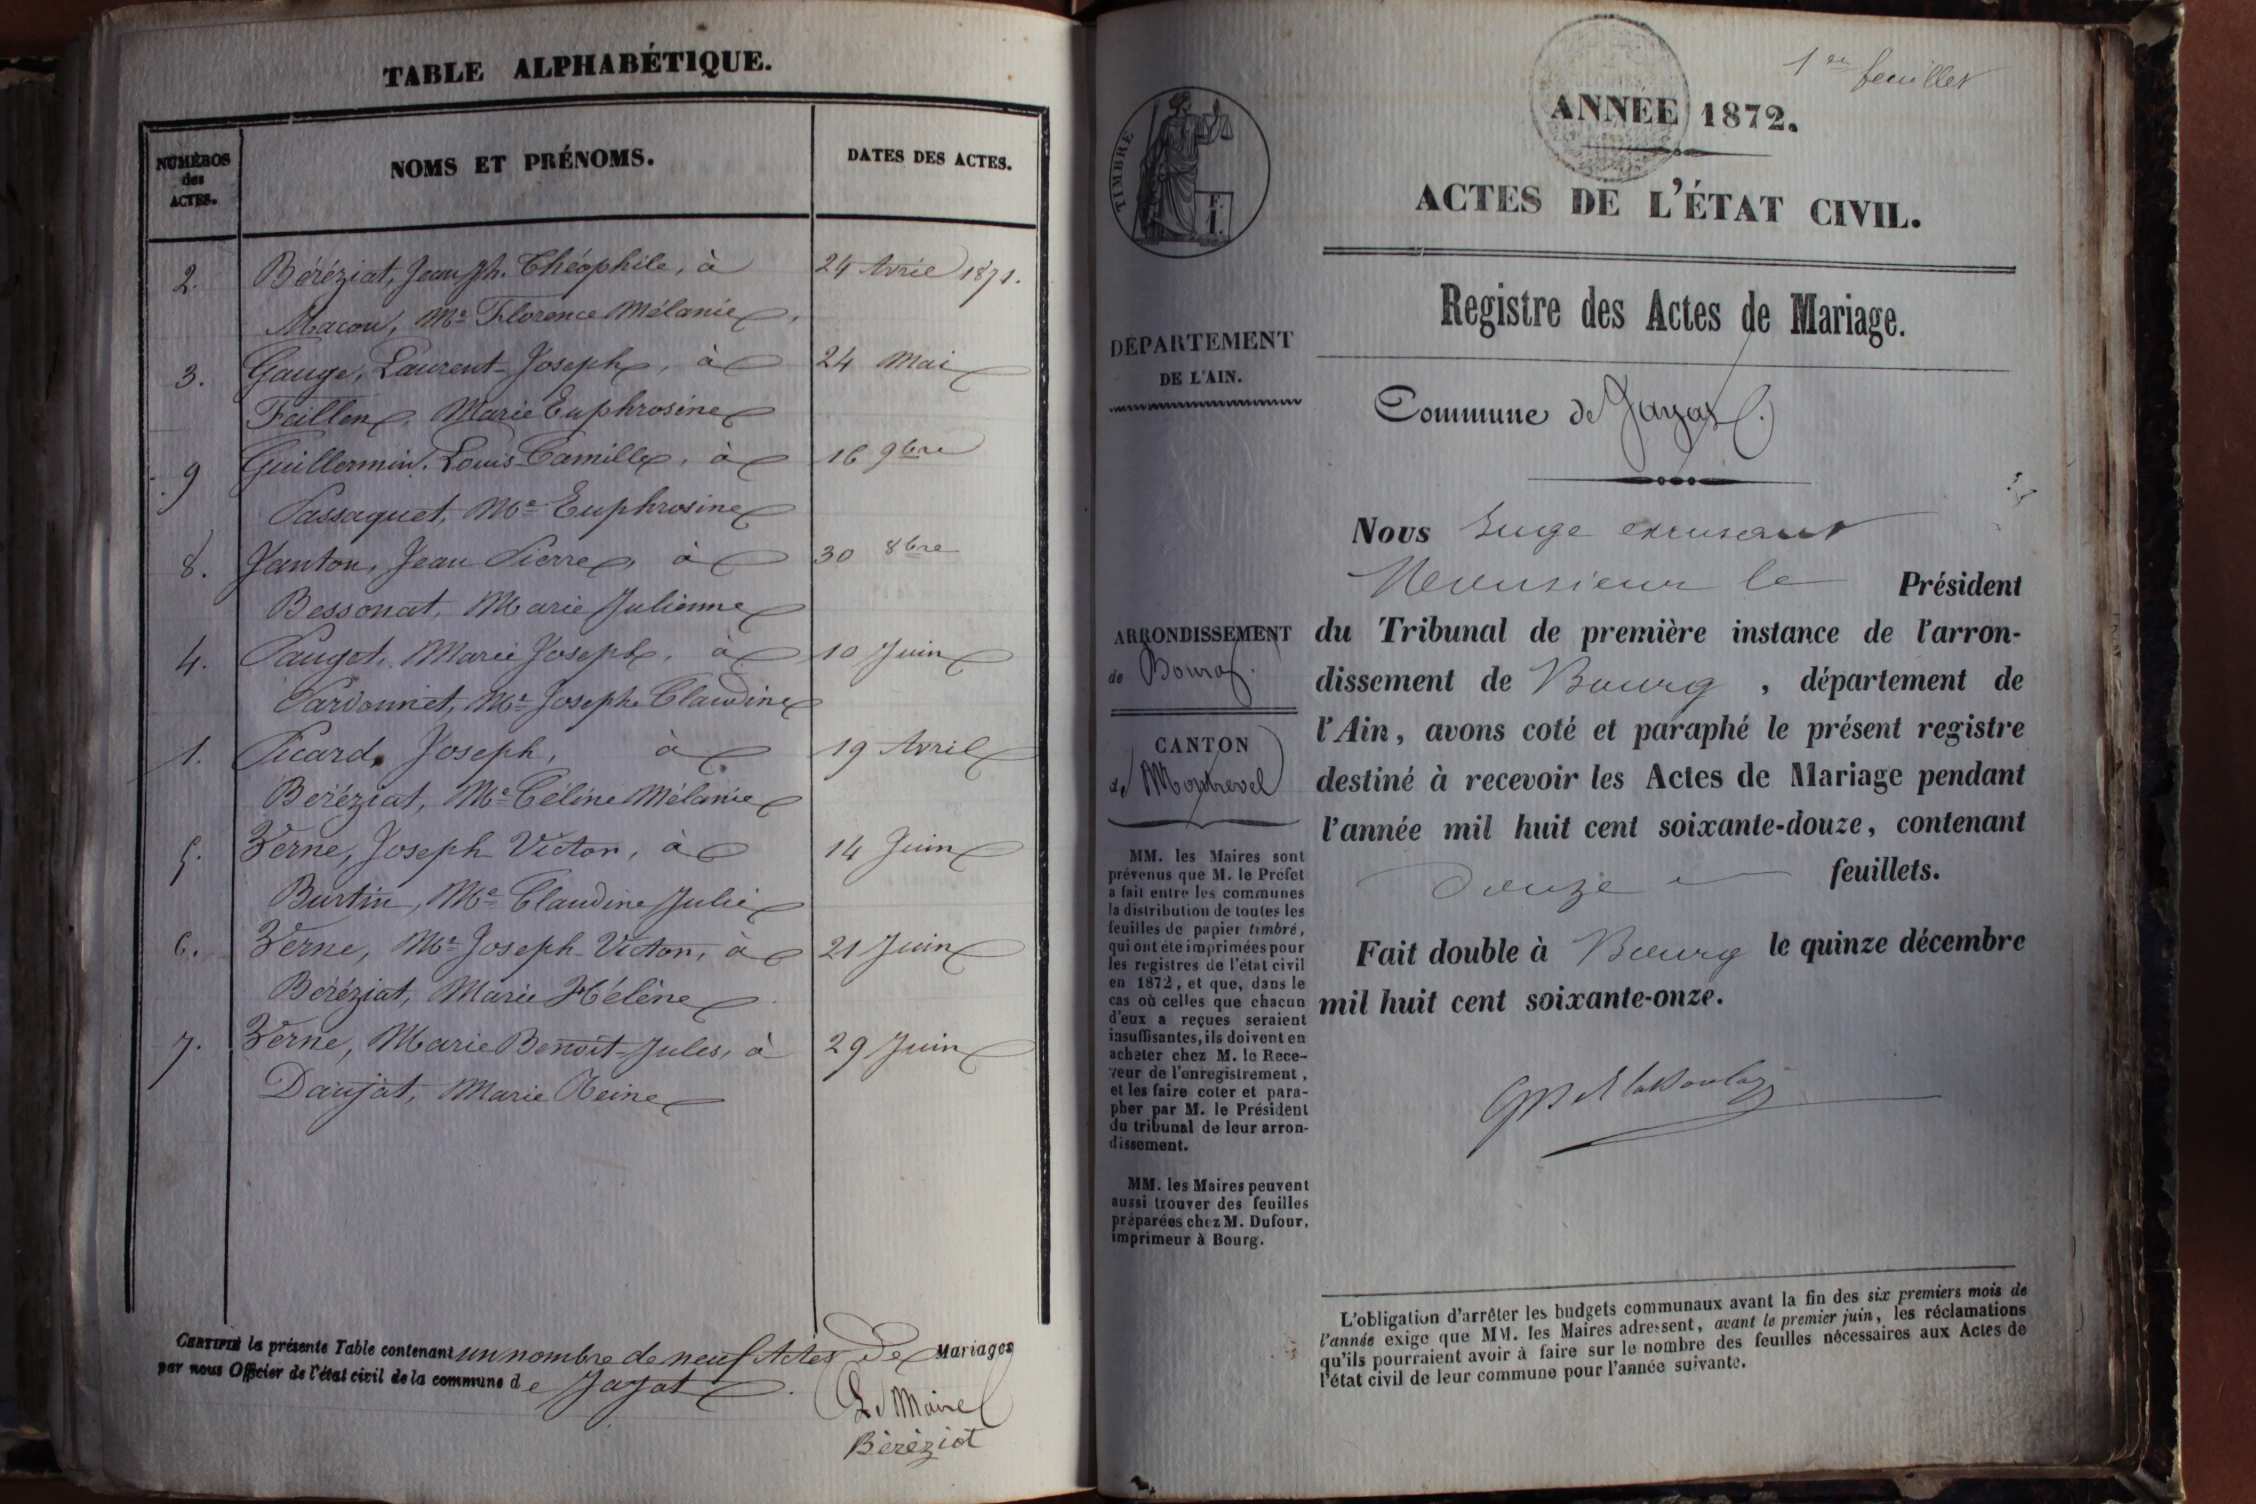 TABLE ALPHABÉTIQUE.
NUMÉROS
des
ACTES.
NOMS ET PRÉNOMS.
DATES DES ACTES.
2. Béréziat, Jean Jh. Théophile, à 24 Avril 1871.
Macon, Mie Florence Mélanie
3. Gauge, Laurent-Joseph, à 24 Mai
Feillen, Marie Euphrosine
9 Guillermin, Louis Camille, à 16 9bre
Passaquet, Mie Euphrosine
8. Janton, Jean Pierre, à 30 8bre
Bessonat, Marie Julienne
4. Pauget, Marie Joseph, à 10 Juin
Pardonnet, Mie Josephe Claudine
1. Picard, Joseph, à 19 Avril
Béréziat, Mie Céline Mélanie
5. Verne, Joseph Victor, à 14 Juin
Burtin, Mie Claudine Julie
6. Verne, Mie Joseph Victor, à 21 Juin
Béréziat, Marie Hélène
7. Verne, Marie Benoit-Jules, à 29 Juin
Daujat, Marie Reine
CERTIFIÉ la présente Table contenant un nombre de neuf Actes de Mariages
par nous Officier de l'état civil de la commune de Jayat.
Le Maire
Béréziat
1er feuillet
TIMBRE
F.
1.
ANNÉE 1872.
ACTES DE L'ÉTAT CIVIL.
Registre des Actes de Mariage.
Commune de Jayat.
DÉPARTEMENT
DE L'AIN.
ARRONDISSEMENT
de Bourg.
CANTON
de Montrevel
MM. les Maires sont
prévenus que M. le Préfet
a fait entre les communes
la distribution de toutes les
feuilles de papier timbré,
qui ont été imprimées pour
les registres de l'état civil
en 1872, et que, dans le
cas où celles que chacun
d'eux a reçues seraient
insuffisantes, ils doivent en
acheter chez M. le Rece-
veur de l'enregistrement,
et les faire coter et para-
pher par M. le Président
du tribunal de leur arron-
dissement.
MM. les Maires peuvent
aussi trouver des feuilles
préparées chez M. Dufour,
imprimeur à Bourg.
Nous Juge excusant
Monsieur le Président
du Tribunal de première instance de l'arron-
dissement de Bourg, département de
l'Ain, avons coté et paraphé le présent registre
destiné à recevoir les Actes de Mariage pendant
l'année mil huit cent soixante-douze, contenant
douze feuillets.
Fait double à Bourg le quinze décembre
mil huit cent soixante-onze.
L'obligation d'arrêter les budgets communaux avant la fin des six premiers mois de
l'année exige que MM. les Maires adressent, avant le premier juin, les réclamations
qu'ils pourraient avoir à faire sur le nombre des feuilles nécessaires aux Actes de
l'état civil de leur commune pour l'année suivante.